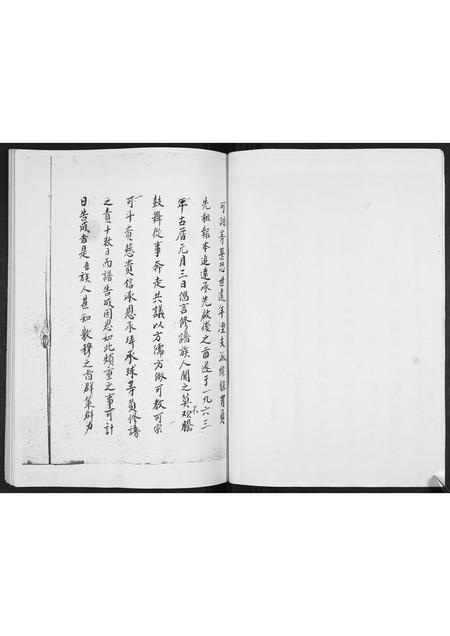 可譜等甚思世遠年湮支派繁衍有負
先祖報本追遠承先啟後之旨遂于一九六三
年古曆元月三日倡言修譜族人聞之莫不歡騰
鼓舞從事奔走共議以方儒方傲可教可宗
可斗貴慈貴信承恩承璋承球等員修譜
之責十数日而譜告成因思如此煩重之事可計
日告成者是吾族人甚知敦穆之旨群策群力